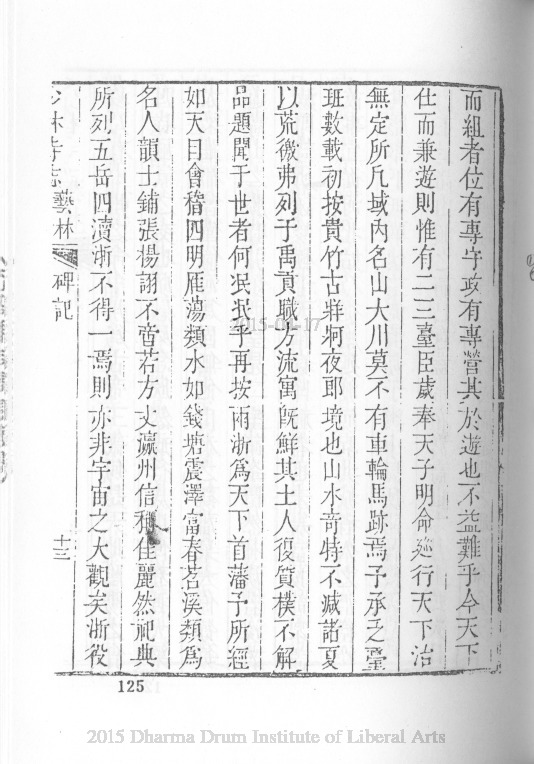 而組者位有專守政有專營其於遊也不益難乎今天下
仕而兼遊則惟有二三臺臣歲奉天子明命廵行天下治
無定所凡域內名山大川莫不有車輪馬跡焉予承乏臺
班數載初按貴竹古牂牁夜郎境也山水奇特不減諸夏
以荒徼弗列于禹貢職方流寓旣鮮其土人復質樸不解
品題聞于世者何泯泯乎再按兩浙爲天下首藩予所經
如天目會稽四明雁蕩類水如錢塘震澤富春苕溪類爲
名人韻士鋪張揚詡不啻若方丈瀛州信稱佳麗然祀典
所列五岳四瀆浙不得一焉則亦非宇宙之大觀矣浙役
少林寺志藝林 碑記 十三
125
2015-01-17
2015 Dharma Drum Institute of Liberal Arts